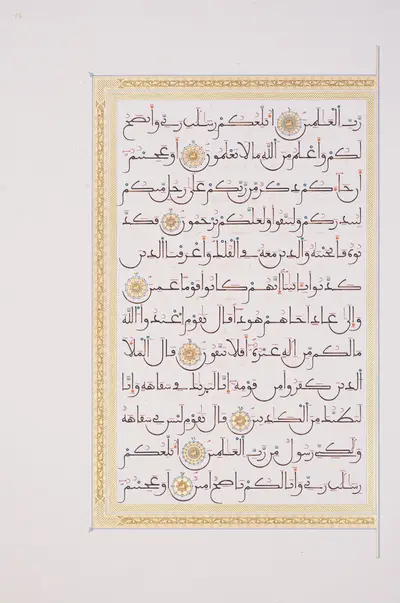 رب العلمين ابلغكم رسلت ربي وانصح
لكم واعلم من الله ما لا تعلمون اوعجبتم
ان جاءكم ذكر من ربكم على رجل منكم
لينذركم ولتتقوا ولعلكم ترحمون فكذ
بوه فانجينه والذين معه في الفلك واغرقنا الذين
كذبوا بايتنا انهم كانوا قوما عمين
والى عاد اخاهم هودا قال يقوم اعبدوا الله
ما لكم من اله غيره افلا تتقون قال الملا
الذين كفروا من قومه انا لنريك في سفاهة وانا
لنظنك من الكذبين قال يقوم ليس بي سفاهة
ولكني رسول من رب العلمين ابلغكم
رسلت ربي وانا لكم ناصح امين اوعجبتم